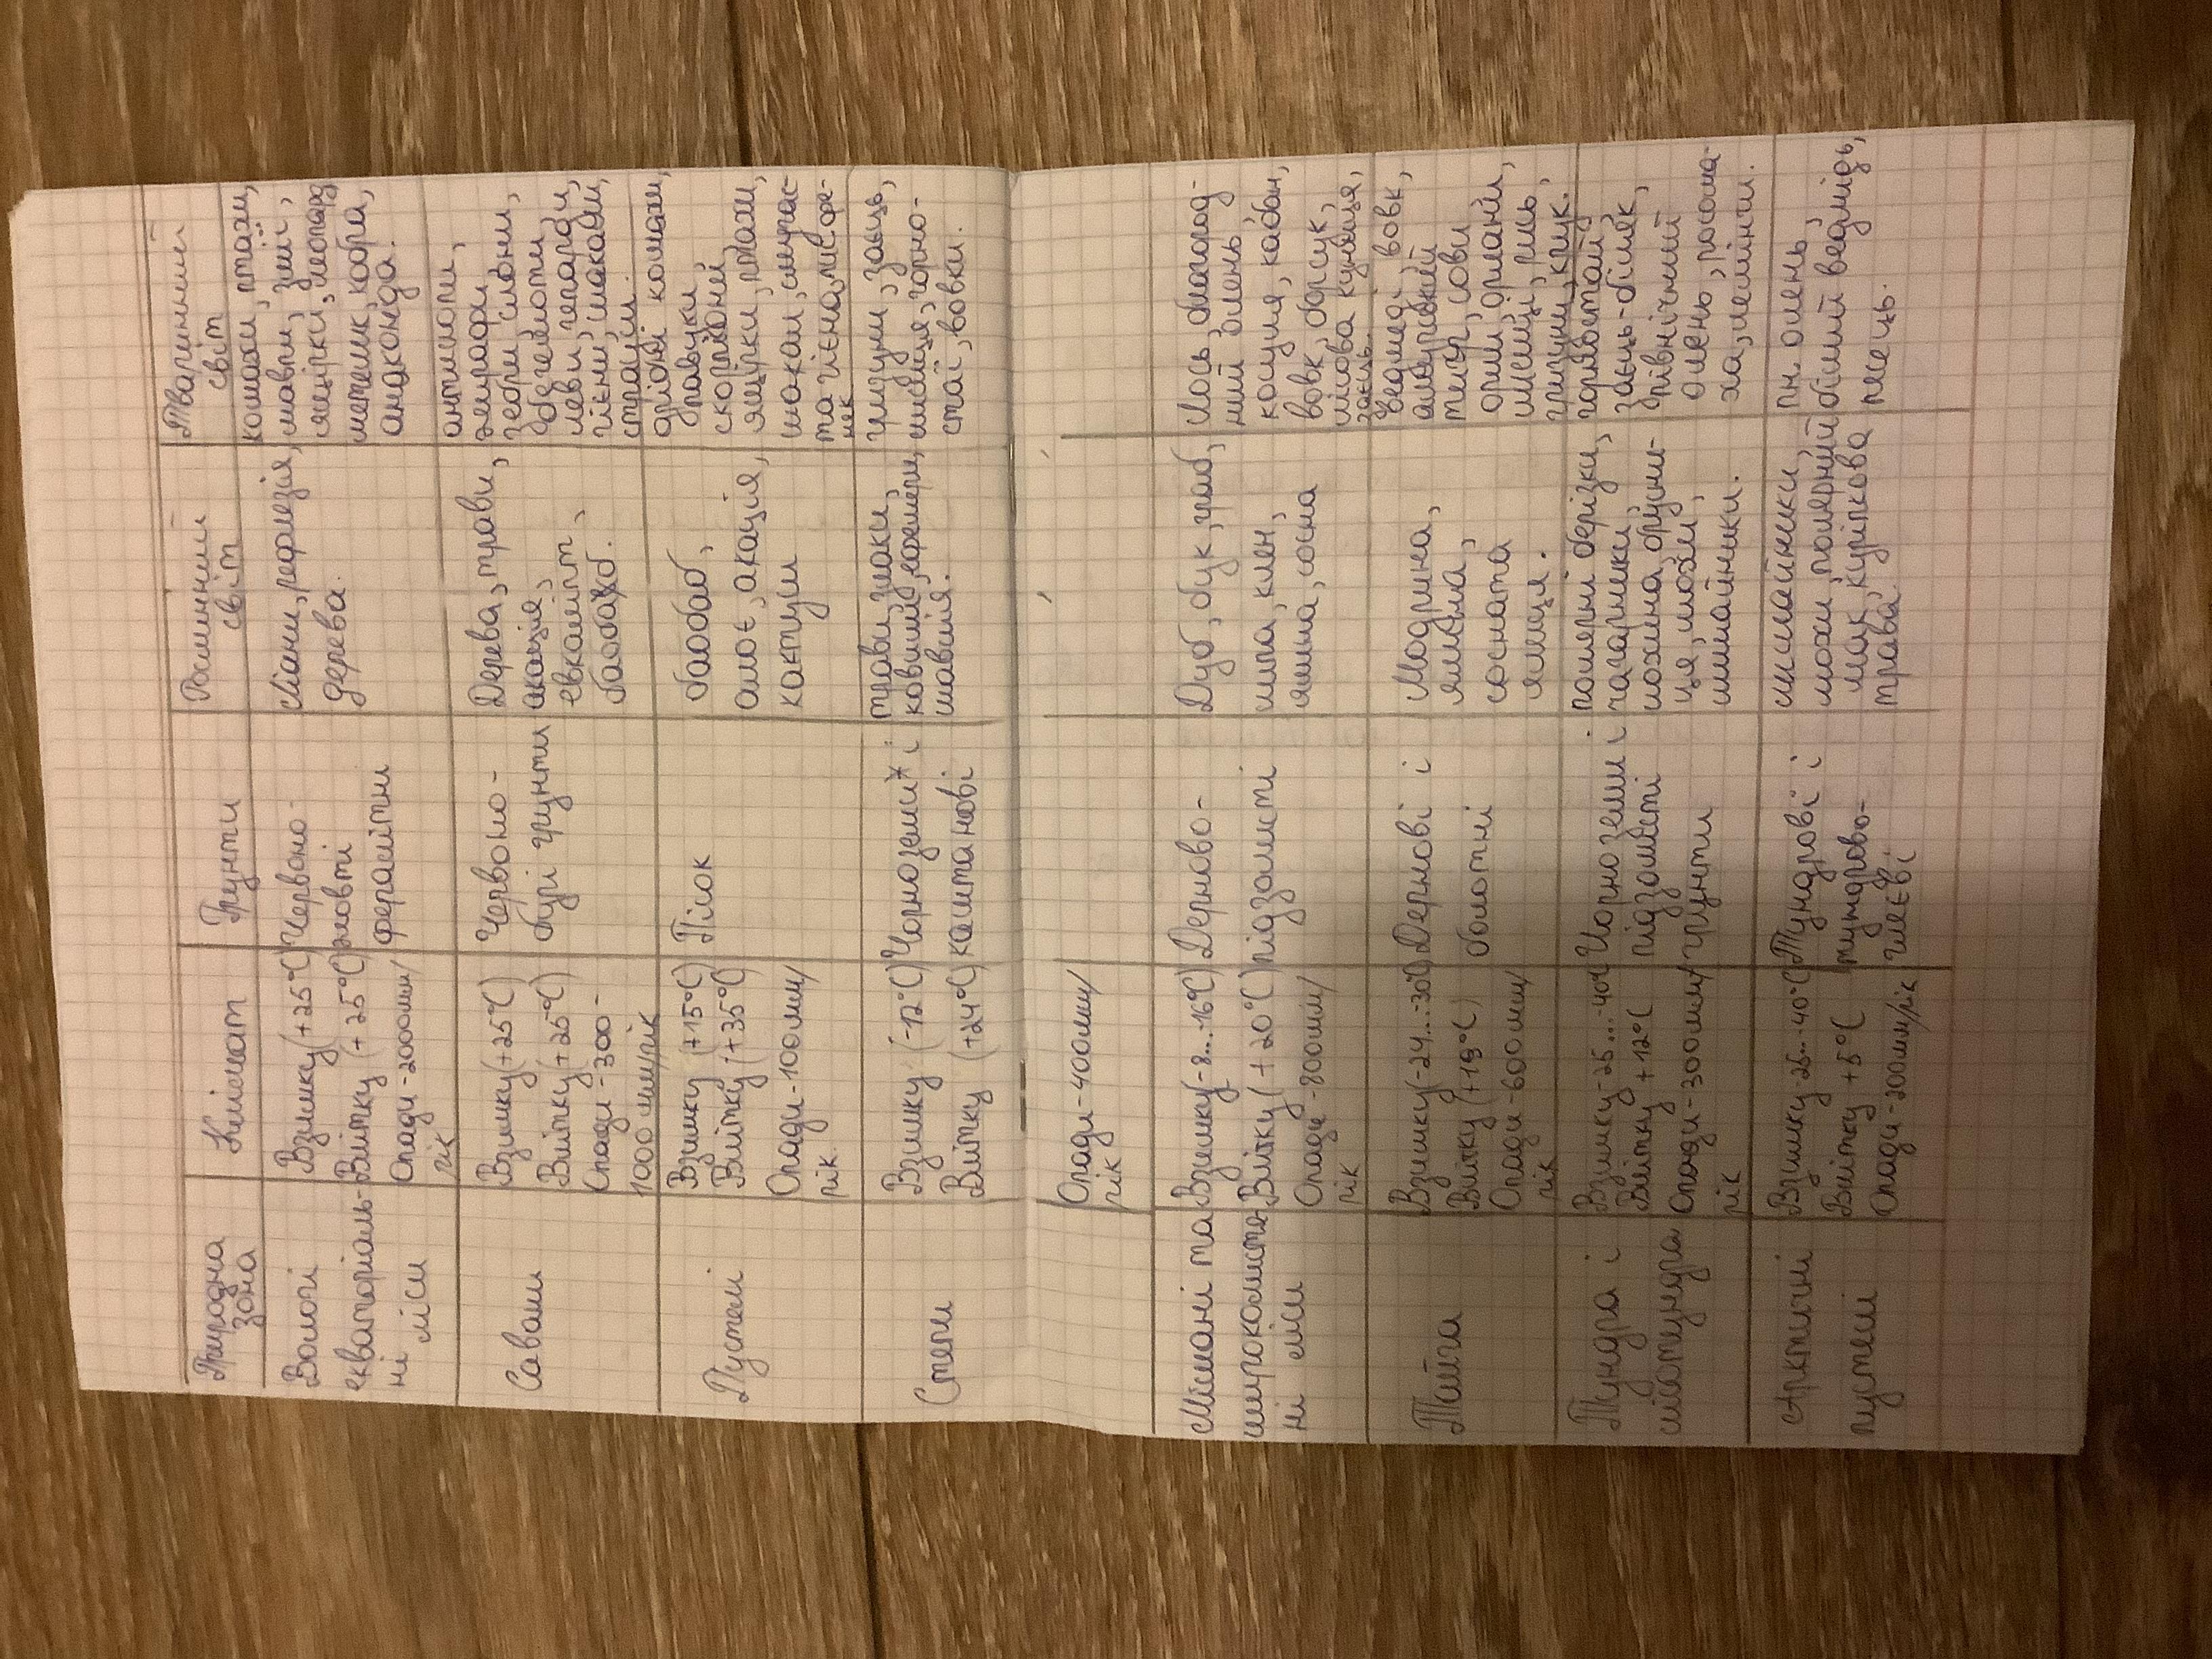 Природна зона
Клімат
Ґрунти
Рослинний світ
Тваринний світ
Вологі
екваторіаль-
ні ліси
Взимку (+25°C)
Влітку (+25°C)
Опади - 2000мм/
рік
Червоно-
жовті
фералітні
Ліани, рафлезія,
дерева.
комахи, птахи,
мавпи, змії,
ящірки, леопард
метелик, кобра,
анаконда.
Савани
Взимку (+25°C)
Влітку (+25°C)
Опади - 300-
1000 мм/рік
Червоно-
бурі ґрунти
Дерева, трави,
акація,
евкаліпт,
баобаб.
антилопи,
жирафи,
зебри, слони,
бегемоти,
леви, гепарди,
гієни, шакали,
страуси.
Пустелі
Взимку (+15°C)
Влітку (+35°C)
Опади - 100мм/
рік.
Пісок
баобаб,
алоє, акація,
кактуси
дрібні комахи,
павуки,
скорпіони,
ящірки, птахи,
шакали,
та гієна, лис фе-
нек
Степи
Взимку (-12°C)
Влітку (+24°C)
Чорноземи і
каштанові
трави, злаки,
ковили,
шавлія.
гризуни, заєць,
лисиця, горно-
стаї, вовки.
Опади - 400мм/
рік
Мішані та
широколистя-
ні ліси
Взимку (-8...-16°C)
Влітку (+20°C)
Опади - 800мм/
рік
Дерново-
підзолисті
Дуб, бук, граб,
липа, клен,
ялина, сосна
Лось, благород-
ний олень
косуля, кабан,
вовк, борсук,
лісова куниця,
заєць.
Тайга
Взимку (-24...-30°C)
Влітку (+19°C)
Опади - 600мм/
рік
Дернові і
болотні
Модрина,
ялина,
сосна та
ялиця.
Ведмеді, вовк,
амурський
тигр, сови
орли, орлани,
лисиці, рись,
гризуни, крук.
Тундра і
лісотундра
Взимку -25...-40°C
Влітку +12°C
Опади - 300мм/
рік
Чорноземи і
підзолисті
ґрунти
полярні берізки,
чагарники,
лохина, брусни-
ця, мохи,
лишайники.
горностай,
заєць-біляк,
північний
олень, росома-
ха, лемінги.
Арктичні
пустелі
Взимку -25...-40°C
Влітку +5°C
Опади - 200мм/рік
Тундрові і
тундрово-
глеєві
лишайники,
мохи, полярний
мак, куріпкова
трава.
пн. олень,
білий ведмідь,
песець.